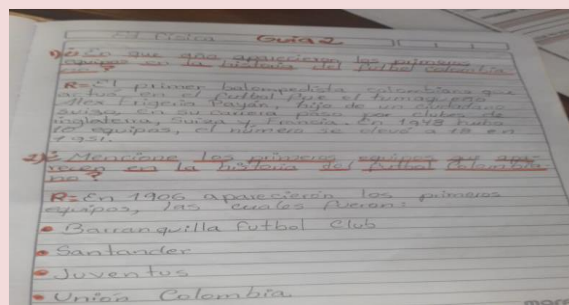 Ed. Fisica Guia 2
1) ¿En que año aparecieron los primeros
equipos en la historia del futbol colombia
no?
R= El primer balompedista colombiano que
actuo en el futbol fue el tumaqueño
hijo de un ciudadano
suizo en su carrera paso por clubes de
inglaterra, Suiza y Francia. En 1948 hubo
10 equipos, el número se elevó a 18 en
1951.
2) ¿Mencione los primeros equipos que apa
recen en la historia del futbol Colombia-
no?
R= En 1906 aparecieron los primeros
equipos, las cuales fueron:
• Barranquilla futbol Club
• Santander
• Juventus
• Unión Colombia